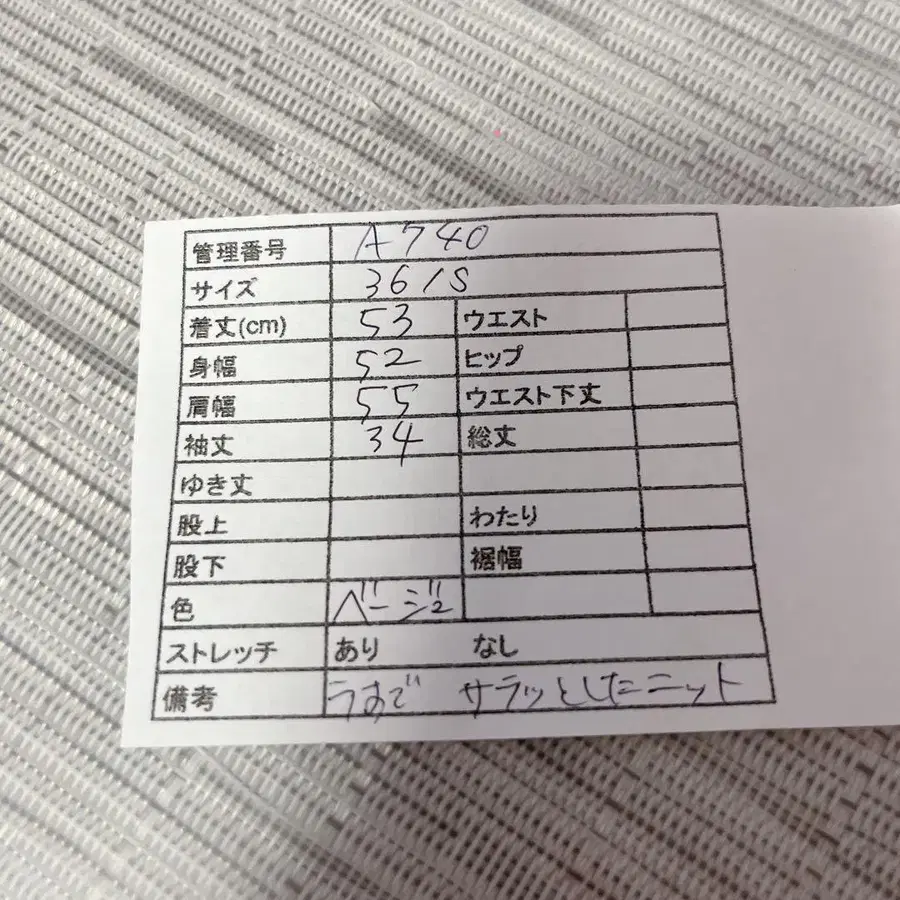 管理番号 A740
サイズ 36/S
着丈(cm) 53 ウエスト
身幅 52 ヒップ
肩幅 55 ウエスト下丈
袖丈 34 総丈
ゆき丈
股上 わたり
股下 裾幅
色 ベージュ
ストレッチ あり なし
備考 うすで サラッとしたニット